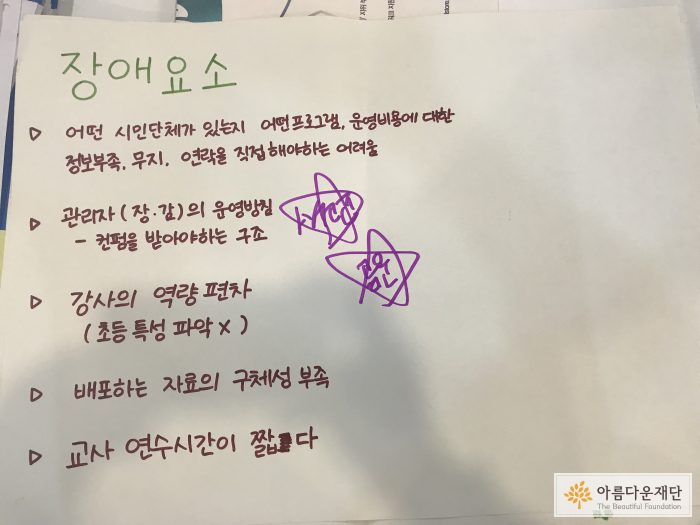 장애요소
▷ 어떤 시민단체가 있는지 어떤프로그램, 운영비용에 대한
정보부족, 무지, 연락을 직접해야하는 어려움
▷ 관리자(장·감)의 운영방침
- 컨펌을 받아야하는 구조
▷ 강사의 역량 편차
(초등 특성 파악 X)
▷ 배포하는 자료의 구체성 부족
▷ 교사 연수시간이 짧다
아름다운재단
The Beautiful Foundation